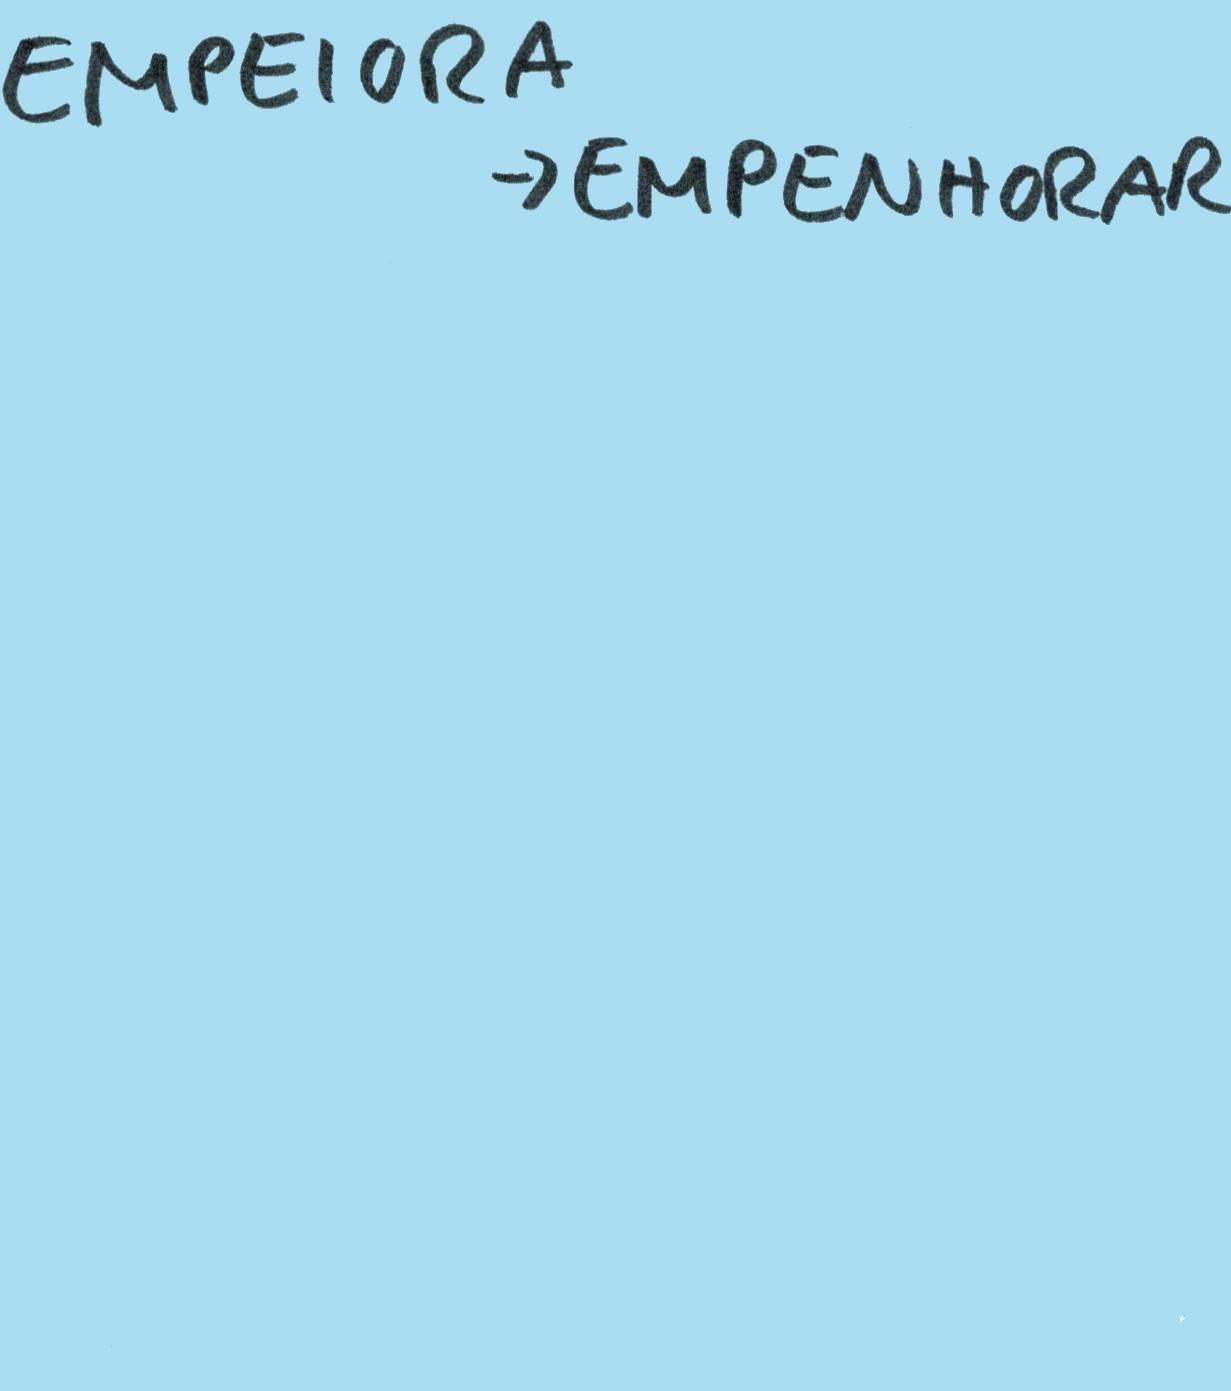 EMPEIORA
→EMPENHORAR